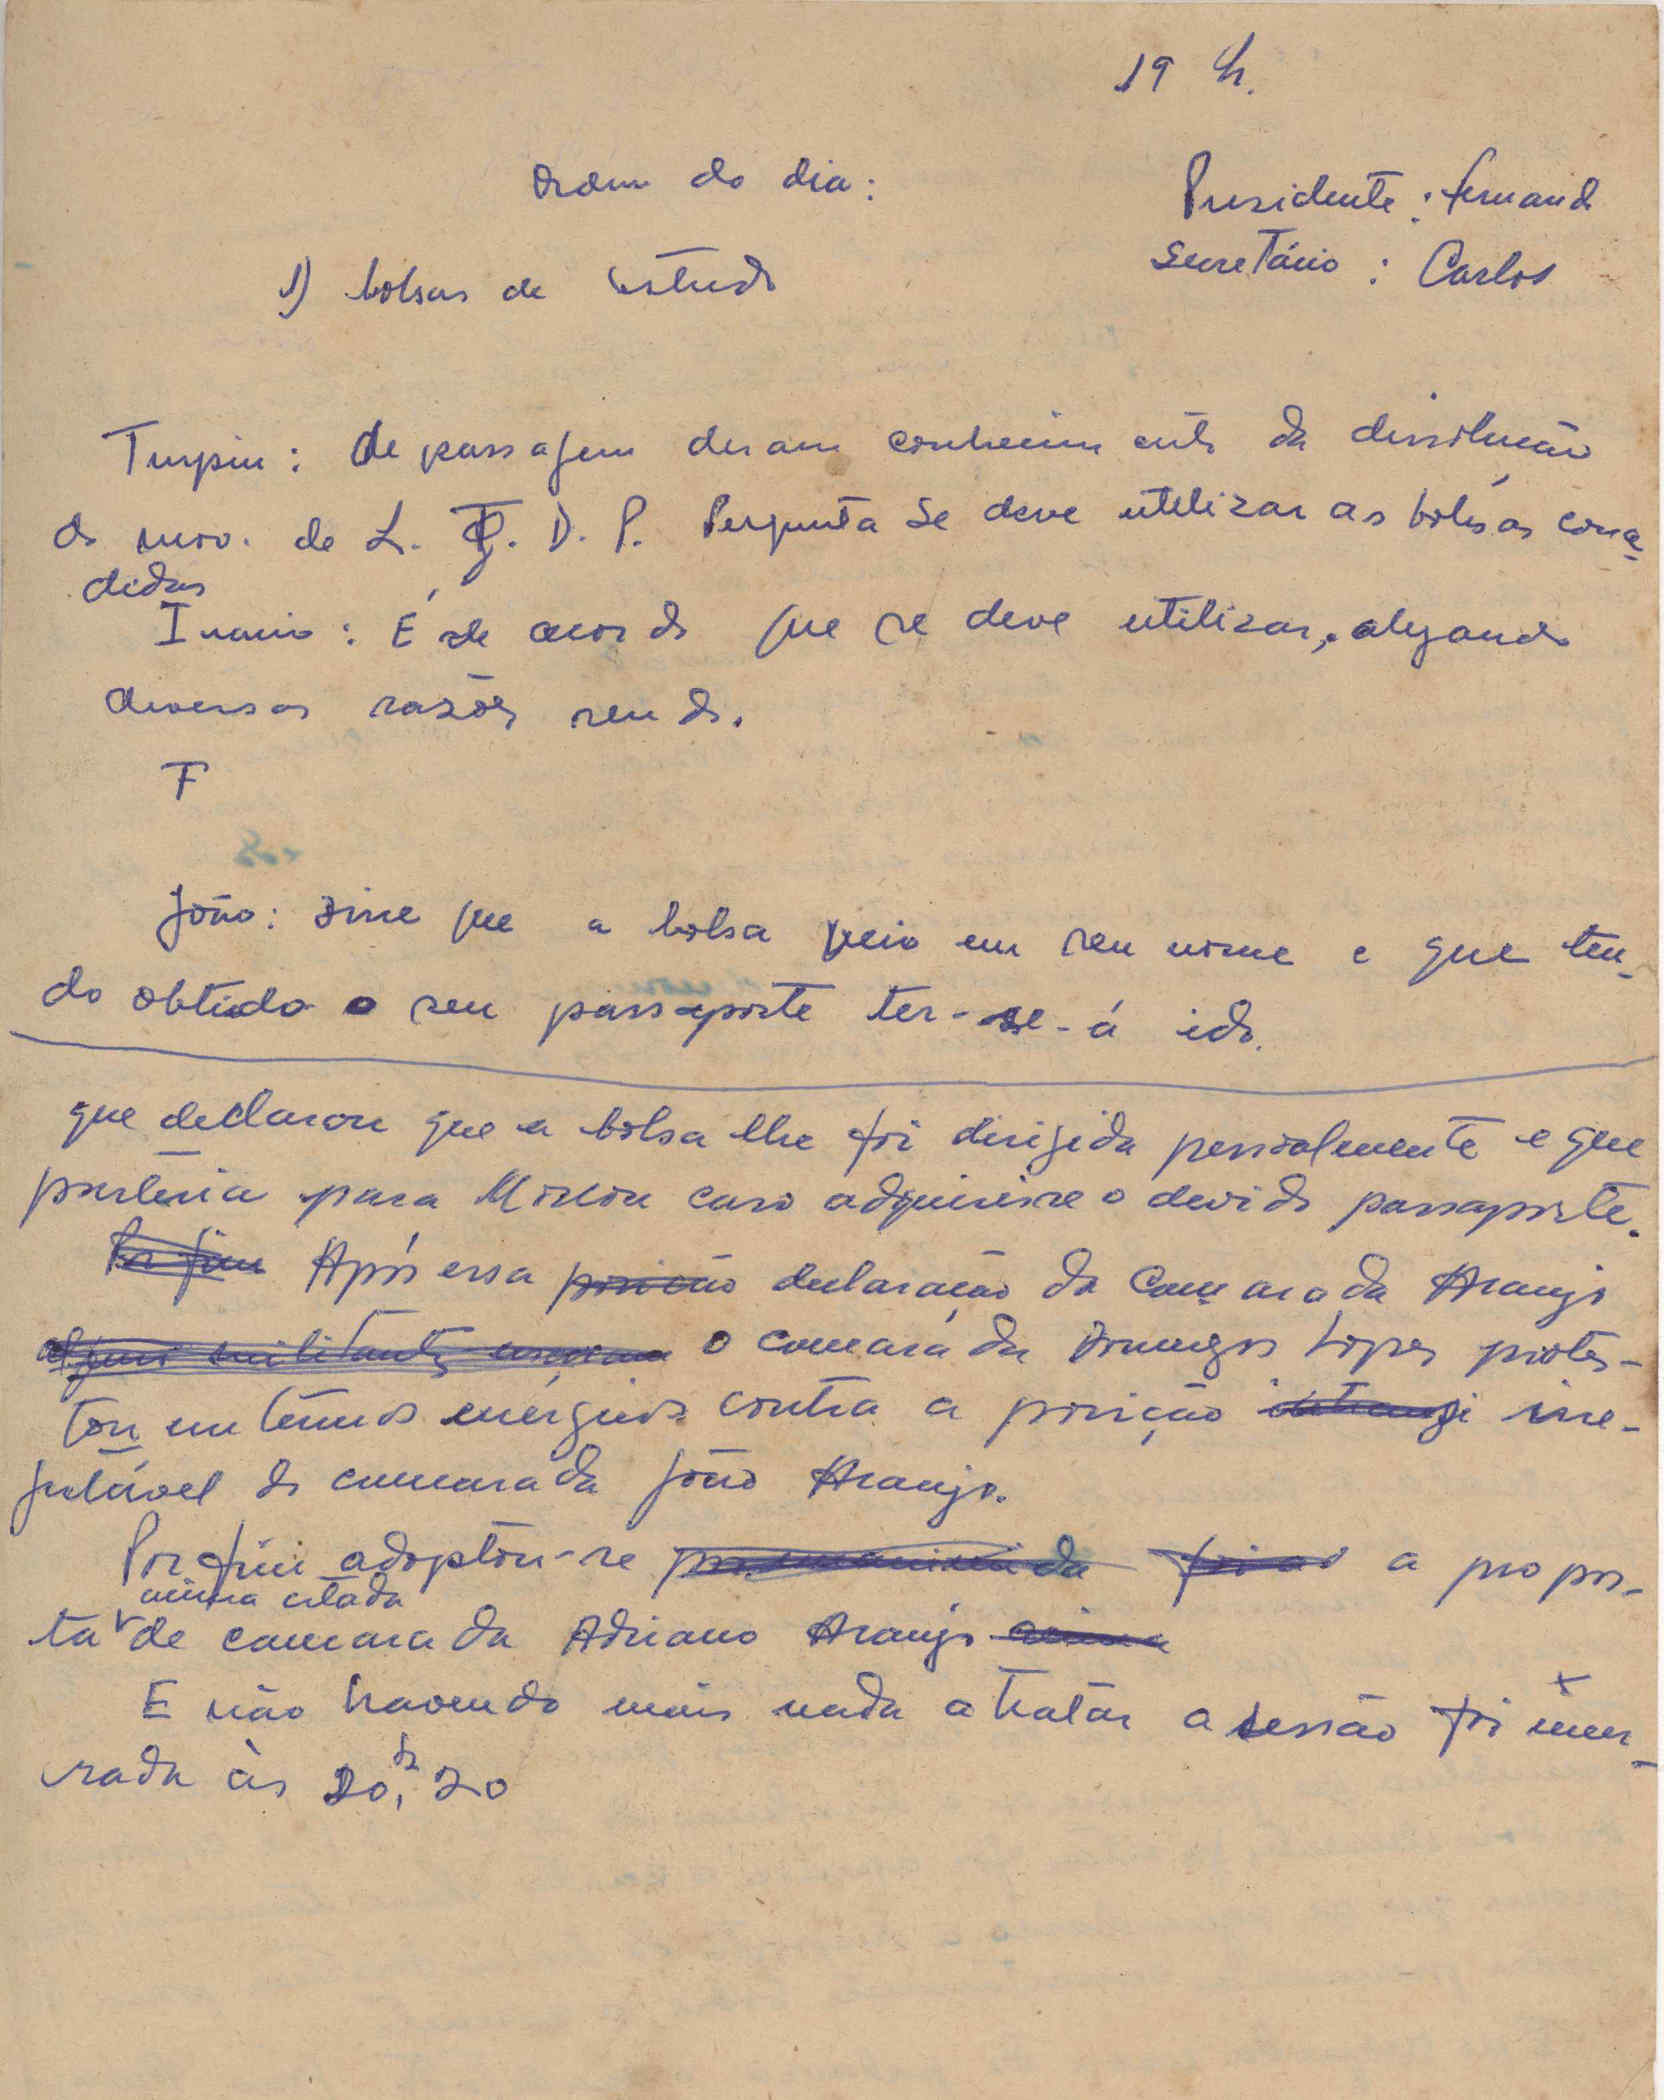 19 h.
Ordem do dia:
Presidente: Fernando
Secretário: Carlos
1) bolsas de estudo
Turpin: De passagem deram conhecimento da dissolução
do mov. de L. D. P. Pergunta se deve utilizar as bolsas conce-
didas
Inacio: É de acordo que se deve utilizar, alegando
diversas razões sendo.
F
João: Disse que a bolsa veio em seu nome e que ten-
do obtido o seu passaporte ter-se-á ido.
que declarou que a bolsa lhe foi dirigida pessoalmente e que
partiria para Moscou caso adquirisse o devido passaporte.
Por fim Após essa posição declaração do camarada Araujo
alguns militantes o camarada Domingos Lopes protes-
tou em termos enérgicos contra a posição intransi irre-
futável do camarada João Araujo.
Por fim adoptou-se a propos-
acima citada
ta de camarada Adriano Araujo acima
E não havendo mais nada a tratar a sessão foi encer-
rada às 20,h 20